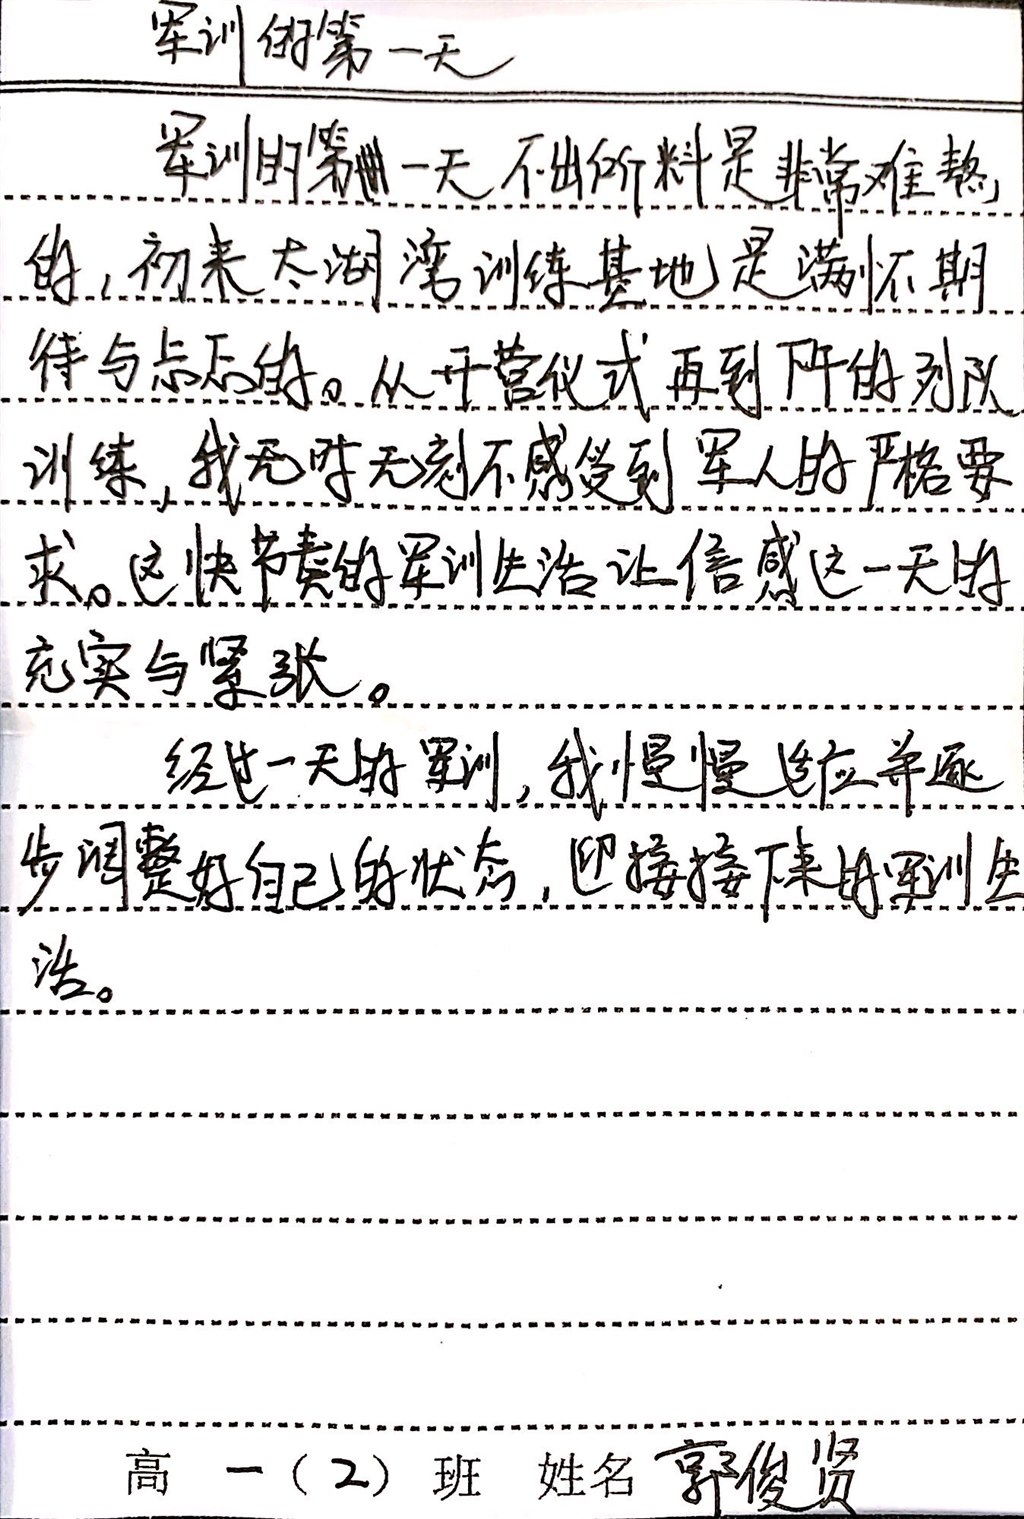 军训的第一天
军训的第一天不出所料是非常难熬
的，初来太湖湾训练基地是满怀期
待与忐忑的。从开营仪式再到下午的列队
训练，我无时无刻不感受到军人的严格要
求。这快节奏的军训生活让倍感这一天的
充实与紧张。
经过一天的军训，我慢慢适应并逐
步调整好自己的状态，迎接接下来的军训生
活。
高一（2）班 姓名 郭俊贤